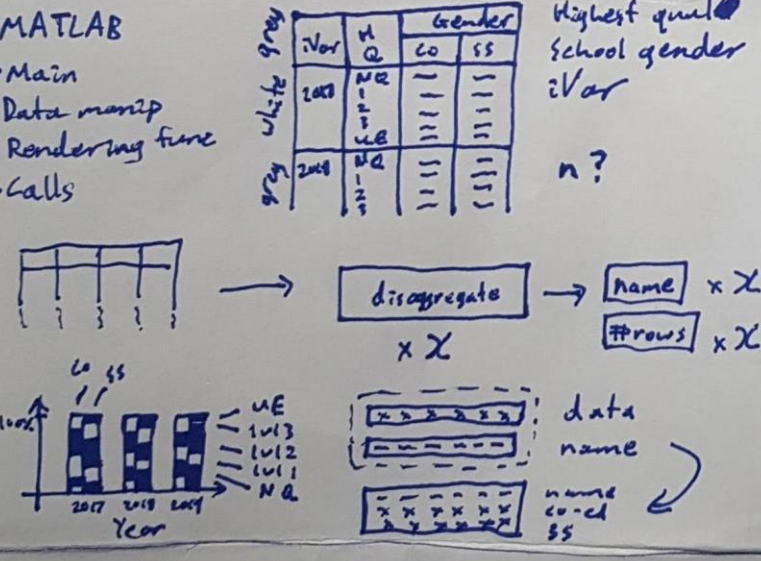 MATLAB
Main
Data manip
Rendering func
Calls
grey
white
grey
iVar
H
Q
Gender
CO
SS
NQ
1
2
3
UE
2018
NQ
1
2
3
Highest qual
School gender
iVar
n?
disaggregate
× X
name × X
#rows × X
CO SS
100%
UE
lvl3
lvl2
lvl1
NQ
2017 2018 2019
Year
data
name
name
co-ed
SS